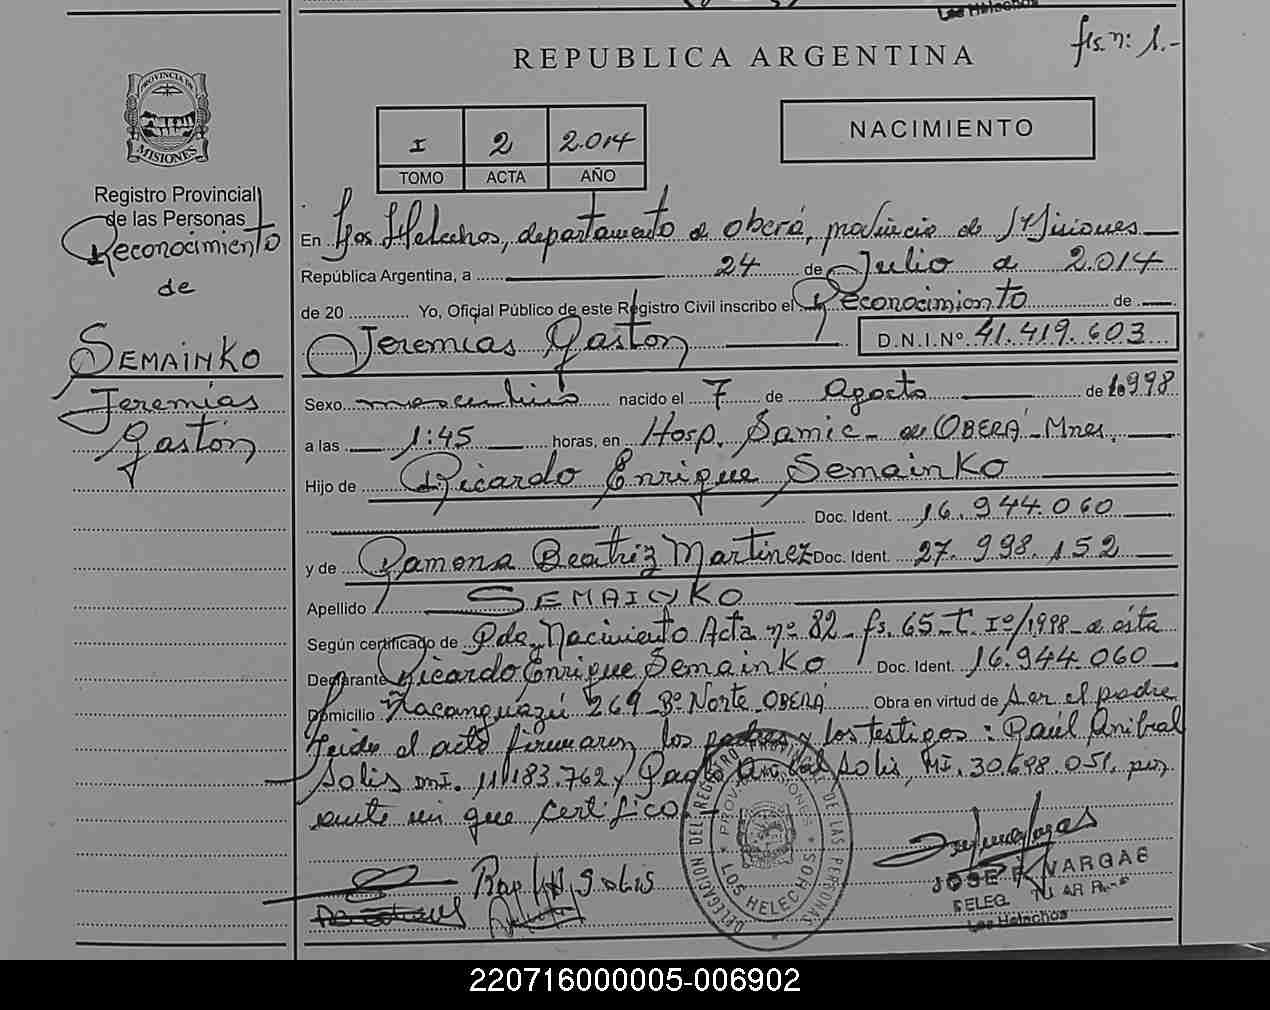 Los Helechos
REPUBLICA ARGENTINA
fs. nº: 1.-
PROVINCIA DE
MISIONES
I 2 2.014
TOMO ACTA AÑO
NACIMIENTO
Registro Provincial
de las Personas
Reconocimiento
de
SEMAINKO
Jeremías
Gastón
En Los Helechos, departamento de Oberá, provincia de Misiones
República Argentina, a 24 de Julio de 2.014
de 20 Yo, Oficial Público de este Registro Civil inscribo el Reconocimiento de
Jeremías Gastón D.N.I.Nº 41.419.603
Sexo masculino nacido el 7 de Agosto de 1.998
a las 1:45 horas, en Hosp. Samic - de OBERÁ - Mnes.
Hijo de Ricardo Enrique Semainko
Doc. Ident. 16.944.060
y de Ramona Beatriz Martinez Doc. Ident. 27.998.152
Apellido SEMAINKO
Según certificado de Pda. Nacimiento Acta nº 82 - fs. 65 - T. Iº/1998 - de ésta
Declarante Ricardo Enrique Semainko Doc. Ident. 16.944.060
Domicilio Ñacanguazú 269 - Bº Norte - OBERÁ Obra en virtud de Ser el padre
Leída el acta firmaron los padres y los testigos: Raúl Anibal
Solis MI. 11.183.762 y Anibal Solis, MI. 30.698.051, por
ante mí que certifico.-
DELEGACION DEL REGISTRO PROVINCIAL DE LAS PERSONAS
PROV. MISIONES
LOS HELECHOS
SOLIS
JOSE F. VARGAS
DELEG. TITULAR
Los Helechos
220716000005-006902